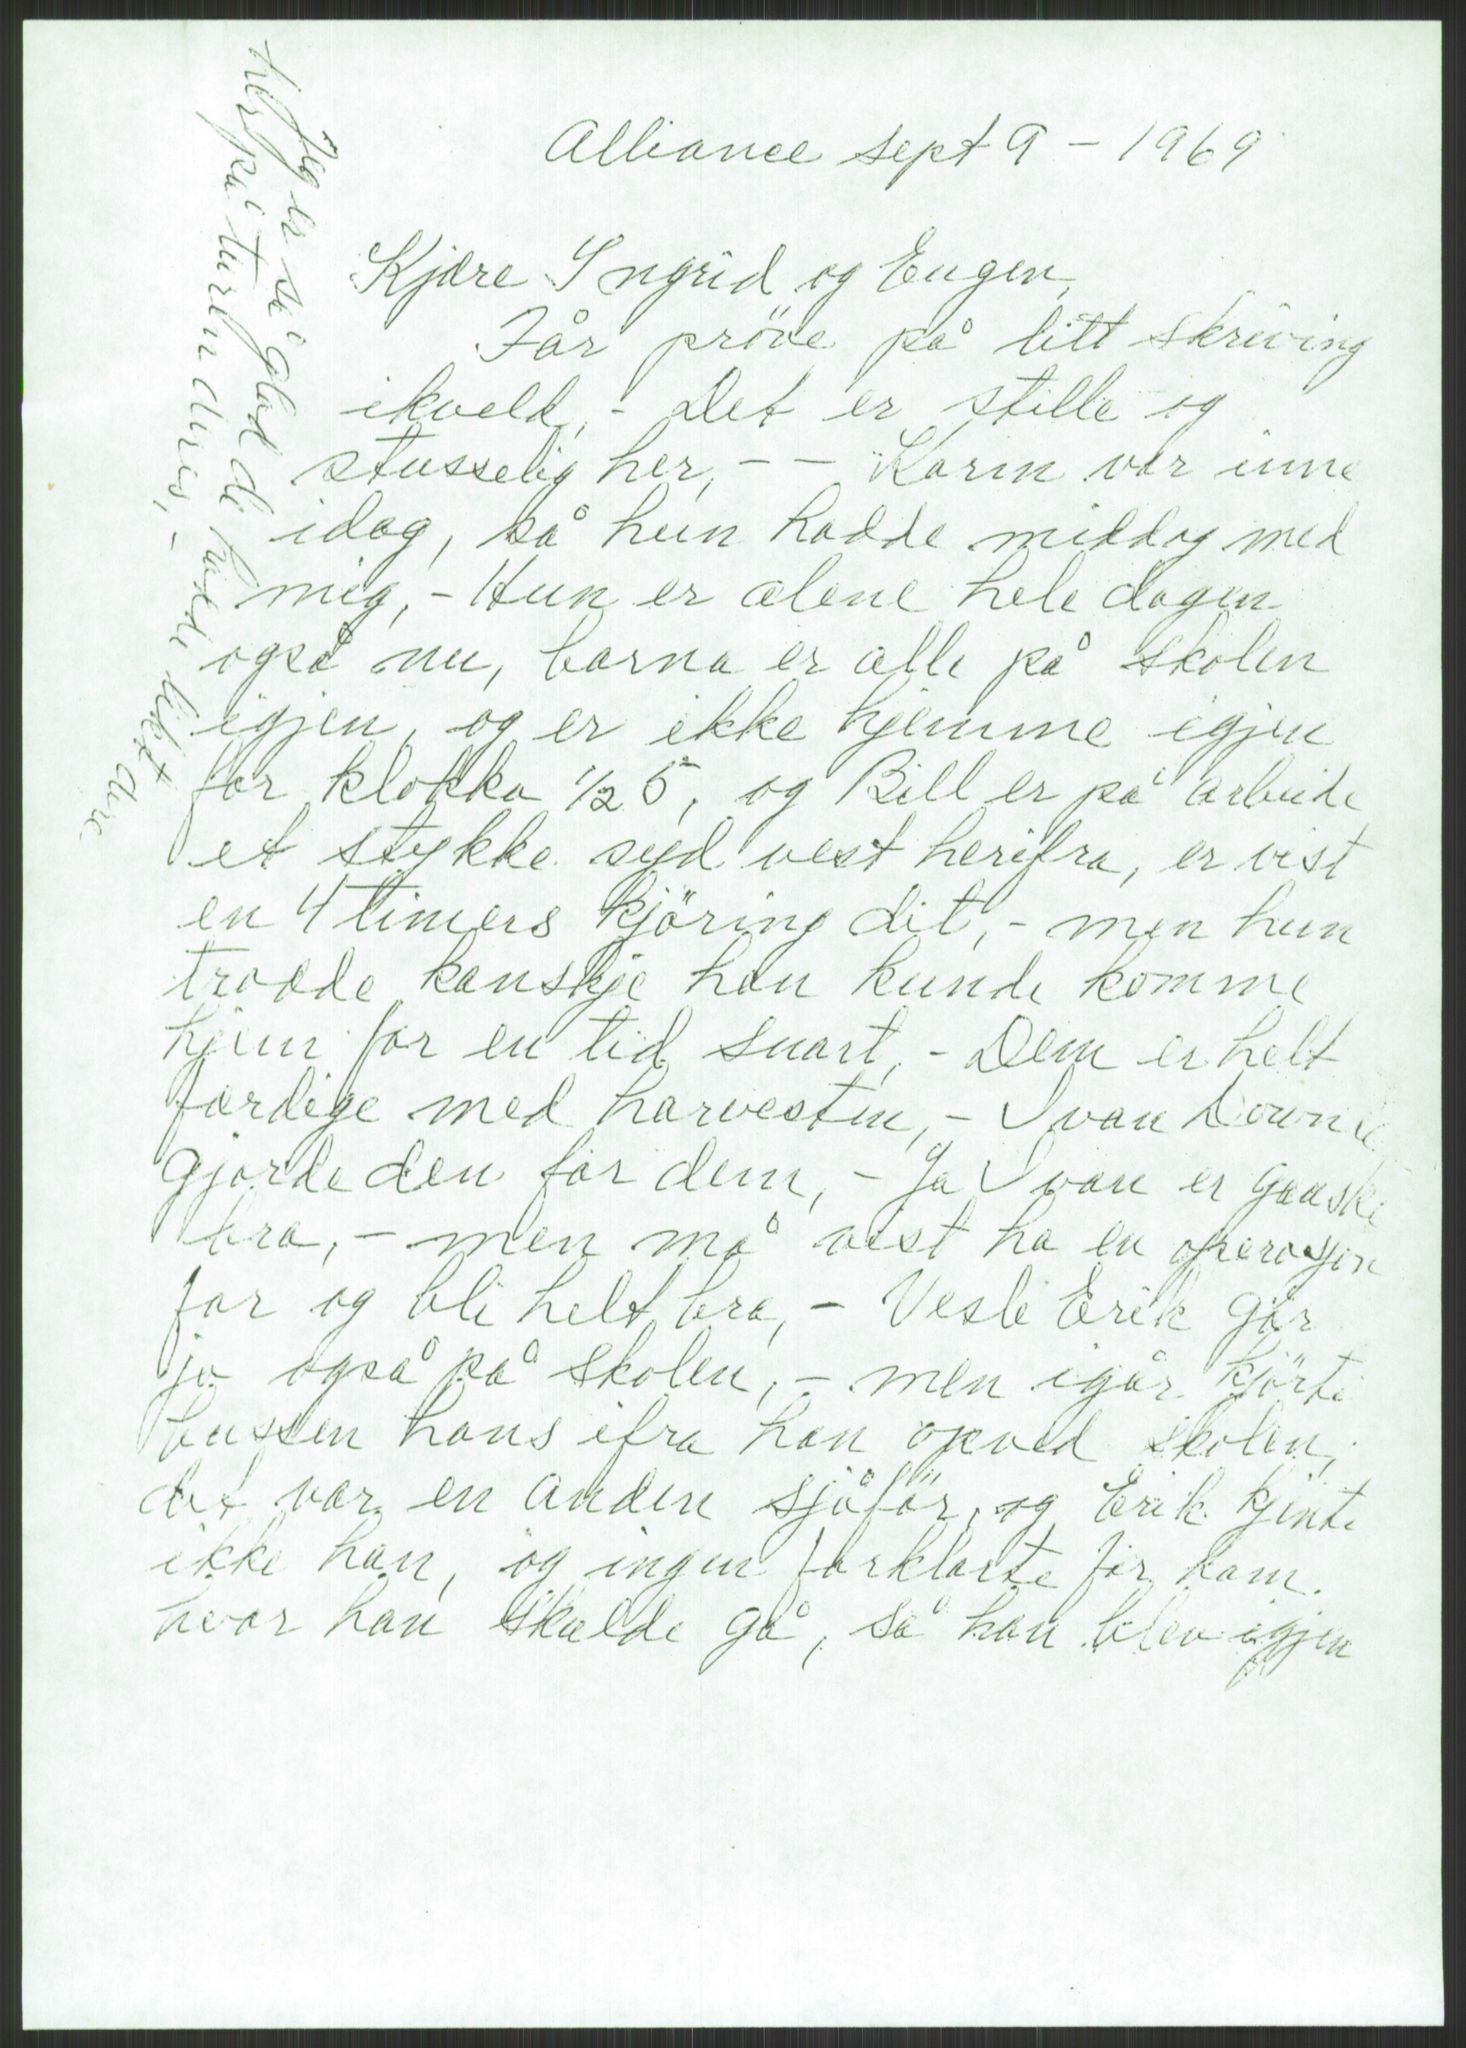 Alliance sept 9 - 1969
Kjære Ingrid og Eugen,
Får pröve på litt skriving
ikveld, - Det er stille og
stusselig her, - - Karin var inne
idag, så hun hadde middag med
mig, - Hun er alene hele dagen
også nu, barna er alle på skolen
igjen, og er ikke hjemme igjen
for klokka 1/2 5, og Bill er på arbeide
et stykke syd vest herifra, er vist
en 4 timers kjöring dit, - men hun
trodde kanskje han kunde komme
hjem for en tid snart, - Dem er helt
færdige med harvesten, - Ivan
gjorde den for dem, - Ja Ivan er ganske
bra, - men må vist ha en operasjon
for og bli helt bra, - Vesle Erik går
jo også på skolen, - men igår kjörte
bussen hans ifra han opved skolen,
det var en anden sjåför, og Erik kjente
ikke han, og ingen forklarte for ham
hvor han skulde gå, så han blev igjen
Jeg er så glad de hadde likt dere
her på turen deres, -